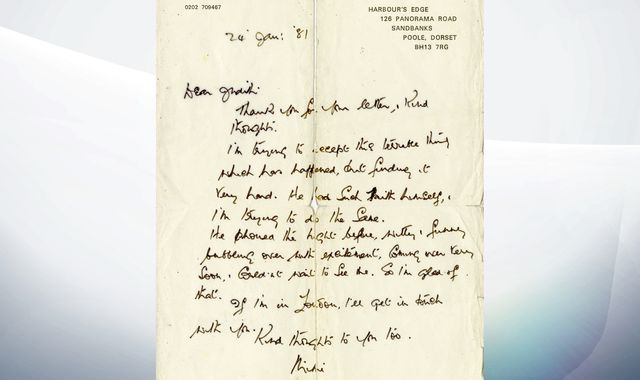 0202 709467
HARBOUR'S EDGE
126 PANORAMA ROAD
SANDBANKS
POOLE, DORSET
BH13 7RG
24 Jan: '81
Dear Judith
Thank you for your letter, & kind
thoughts.
I'm trying to accept this terrible thing
which has happened, but finding it
very hard. He had such faith himself, &
I'm trying to do the same.
He phoned the night before, witty & funny
bubbling over with excitement, coming over very
soon, & couldn't wait to see me. So I'm glad of
that. If I'm in London, I'll get in touch
with you. Kind thoughts to you too.
Mimi